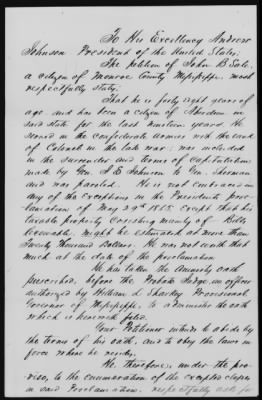 To His Excellency Andrew
Johnson President of the United States;
The petition of John B Sale
a citizen of Monroe County Mississippi, most
respectfully states;
That he is forty eight years of
age and has been a citizen of Aberdeen in
said State for the last nineteen years. He
served in the confederate armies with the rank
of Colonel in the late war: was included
in the surrender and terms of capitulation
made by Gen. J E Johnson to Gen. Sherman
and was paroled. He is not embraced in
any of the exceptions in the Presidents proc-
lamation of May 29th 1865 except that his
taxable property consisting mainly of Bills
receivable, might be estimated at more than
Twenty Thousand Dollars. He was not worth that
much at the date of the proclamation.
He has taken the Amnesty oath
prescribed, before the Probate Judge, an officer
authorized by William L Sharkey Provisional
Governor of Mississippi, to administer the oath
which is herewith filed.
Your Petitioner intends to abide by
the terms of his oath, and to obey the laws in
force where he resides.
He, Therefore, under the pro-
viso, to the enumeration of the excepted classes
in said Proclamation, respectfully asks for